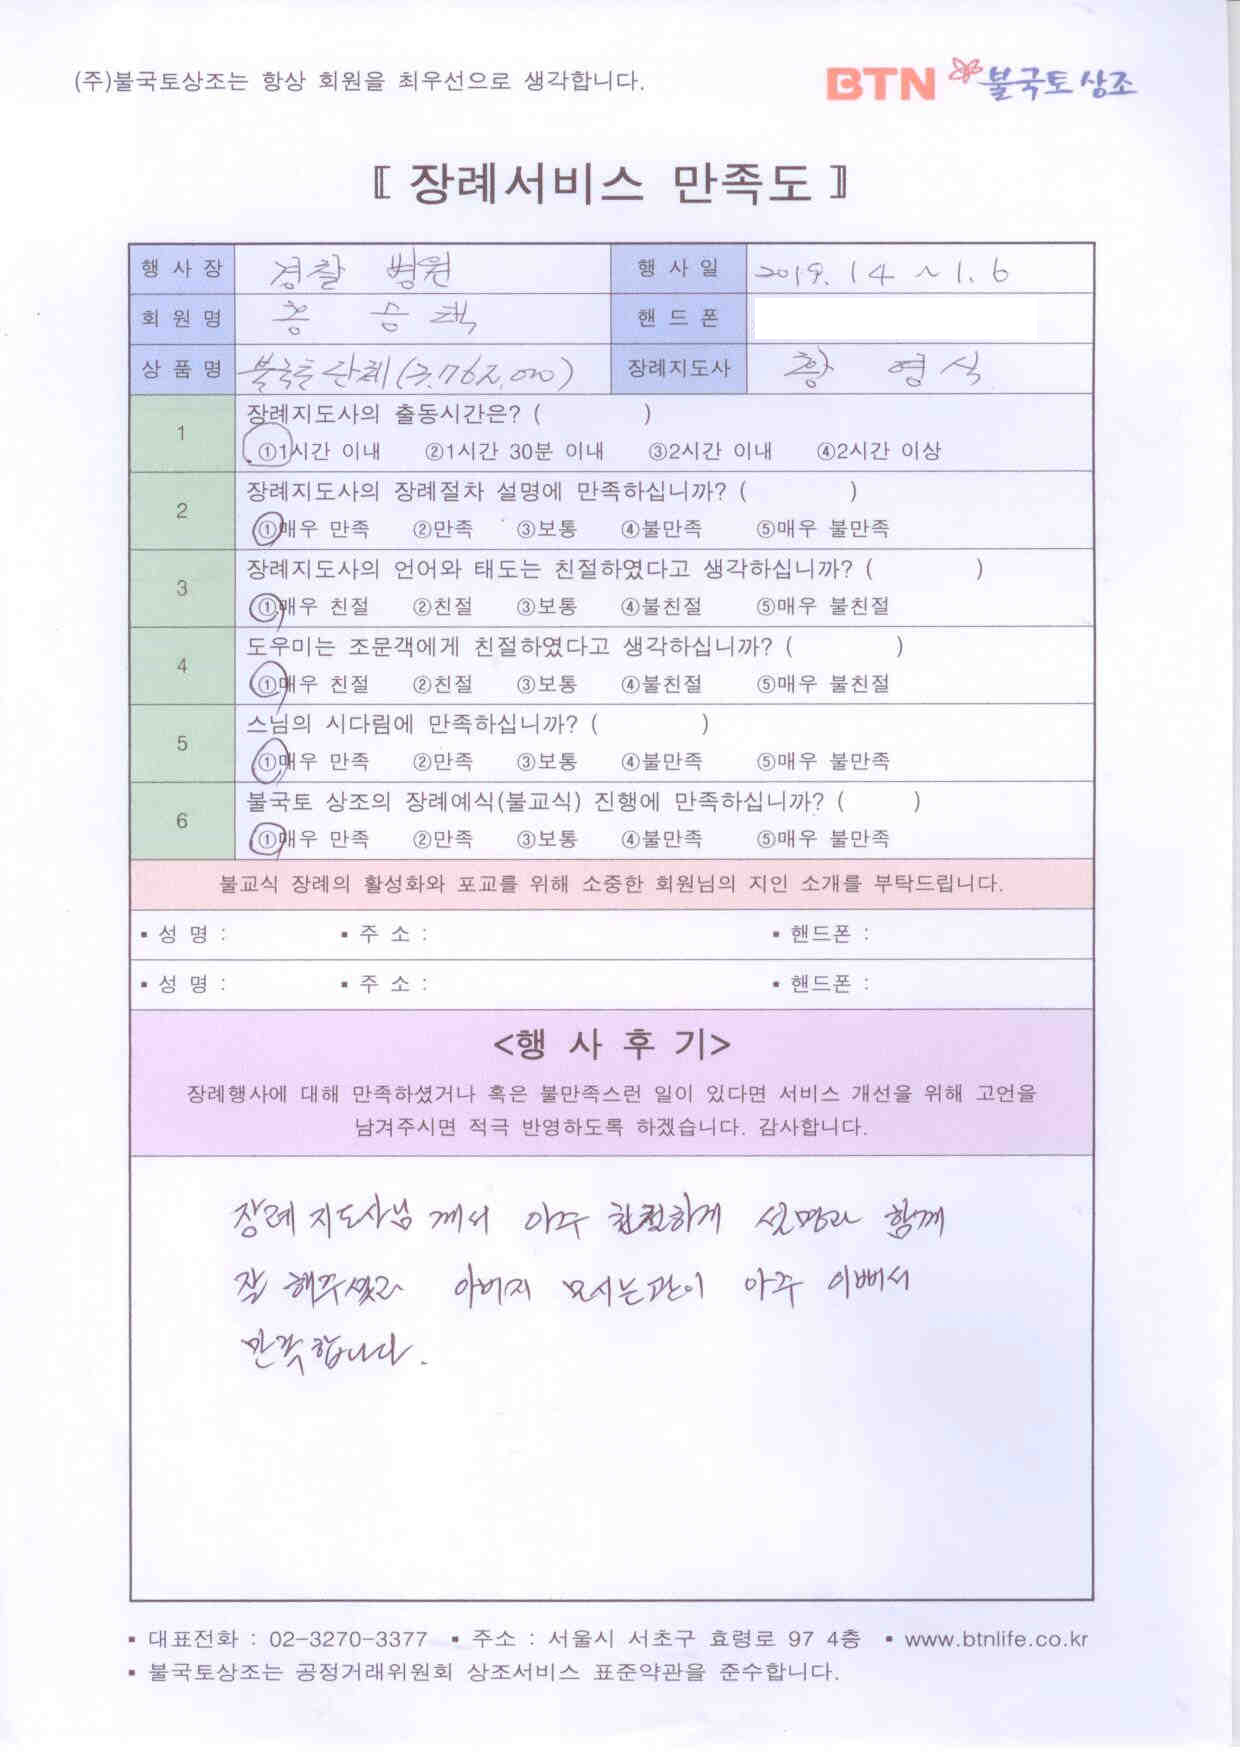 (주)불국토상조는 항상 회원을 최우선으로 생각합니다.
BTN 불국토상조
〖 장례서비스 만족도 〗
행 사 장 경찰 병원 행 사 일 2019. 1 4 ~ 1. 6
회 원 명 홍 승 택 핸 드 폰
상 품 명 불국토 단체 (3,762,000) 장례지도사 황 영 식
1 장례지도사의 출동시간은? ( )
①1시간 이내 ②1시간 30분 이내 ③2시간 이내 ④2시간 이상
2 장례지도사의 장례절차 설명에 만족하십니까? ( )
①매우 만족 ②만족 ③보통 ④불만족 ⑤매우 불만족
3 장례지도사의 언어와 태도는 친절하였다고 생각하십니까? ( )
①매우 친절 ②친절 ③보통 ④불친절 ⑤매우 불친절
4 도우미는 조문객에게 친절하였다고 생각하십니까? ( )
①매우 친절 ②친절 ③보통 ④불친절 ⑤매우 불친절
5 스님의 시다림에 만족하십니까? ( )
①매우 만족 ②만족 ③보통 ④불만족 ⑤매우 불만족
6 불국토 상조의 장례예식(불교식) 진행에 만족하십니까? ( )
①매우 만족 ②만족 ③보통 ④불만족 ⑤매우 불만족
불교식 장례의 활성화와 포교를 위해 소중한 회원님의 지인 소개를 부탁드립니다.
▪ 성 명 : ▪ 주 소 : ▪ 핸드폰 :
▪ 성 명 : ▪ 주 소 : ▪ 핸드폰 :
<행 사 후 기>
장례행사에 대해 만족하셨거나 혹은 불만족스런 일이 있다면 서비스 개선을 위해 고언을
남겨주시면 적극 반영하도록 하겠습니다. 감사합니다.
장례 지도사님 께서 아주 친절하게 설명과 함께
잘 해주셨고 아버지 모시는관이 아주 이뻐서
만족합니다.
▪ 대표전화 : 02-3270-3377 ▪ 주소 : 서울시 서초구 효령로 97 4층 ▪ www.btnlife.co.kr
▪ 불국토상조는 공정거래위원회 상조서비스 표준약관을 준수합니다.